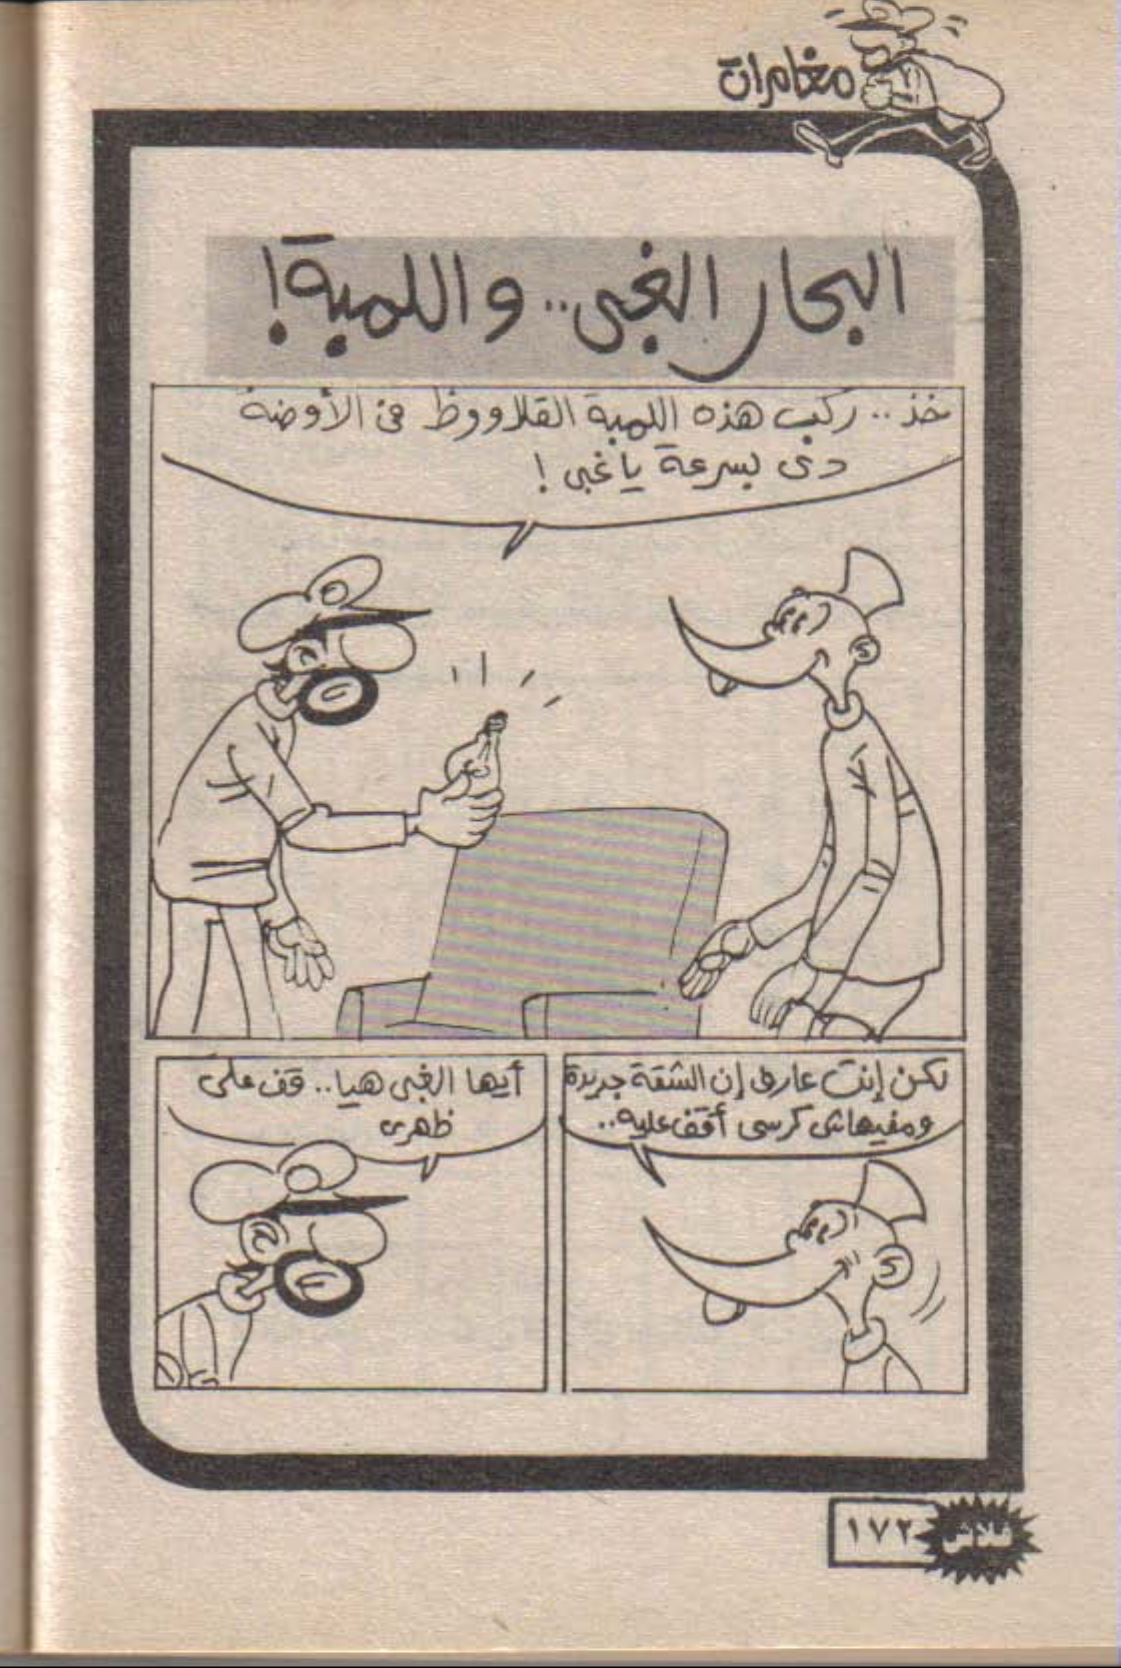 مغامرات
البحار الغبى.. واللمبة!
خذ.. ركب هذه اللمبة القلاووظ فى الأوضة
دى بسرعة يا غبى!
لكن إنت عارف إن الشقة جديدة
ومفيهاش كرسى أقف عليه..
أيها الغبى هيا.. قف على
ظهرى
فلاش
١٧٢